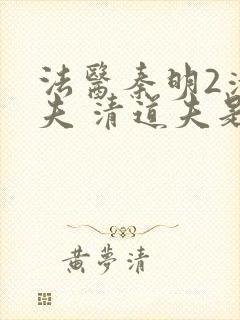 法醫秦明2清
夫 清道夫是
黃夢清